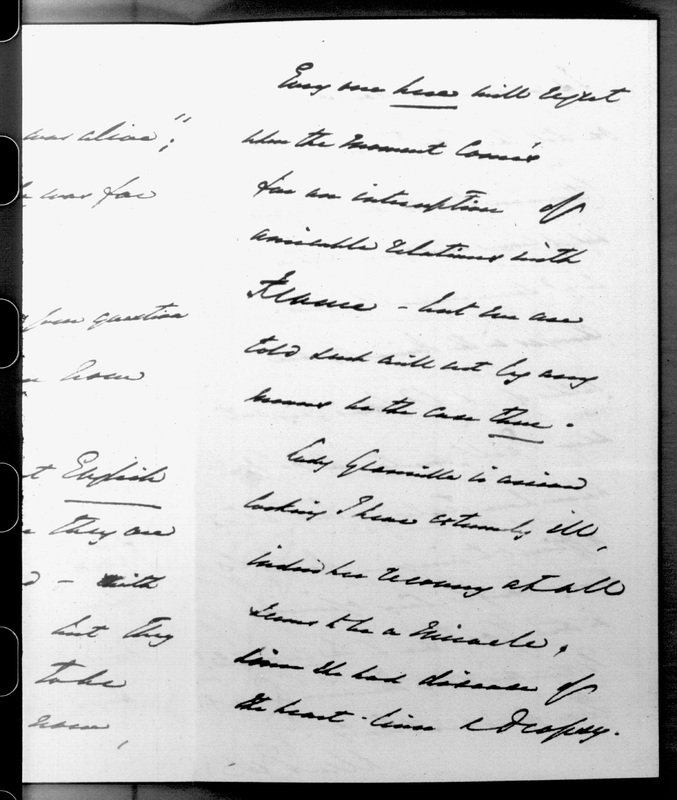 was alive";
was for
your question
now
English
they are
– with
but they
to be
now,
Every one here will regret
when the moment comes
for an interruption of
amicable relations with
France – but we are
told such will not by any
means be the case there.
Lady Granville is arrived
looking I hear extremely ill,
indeed her recovery at all
seems to be a miracle,
since she had disease of
the heart – liver & dropsy.